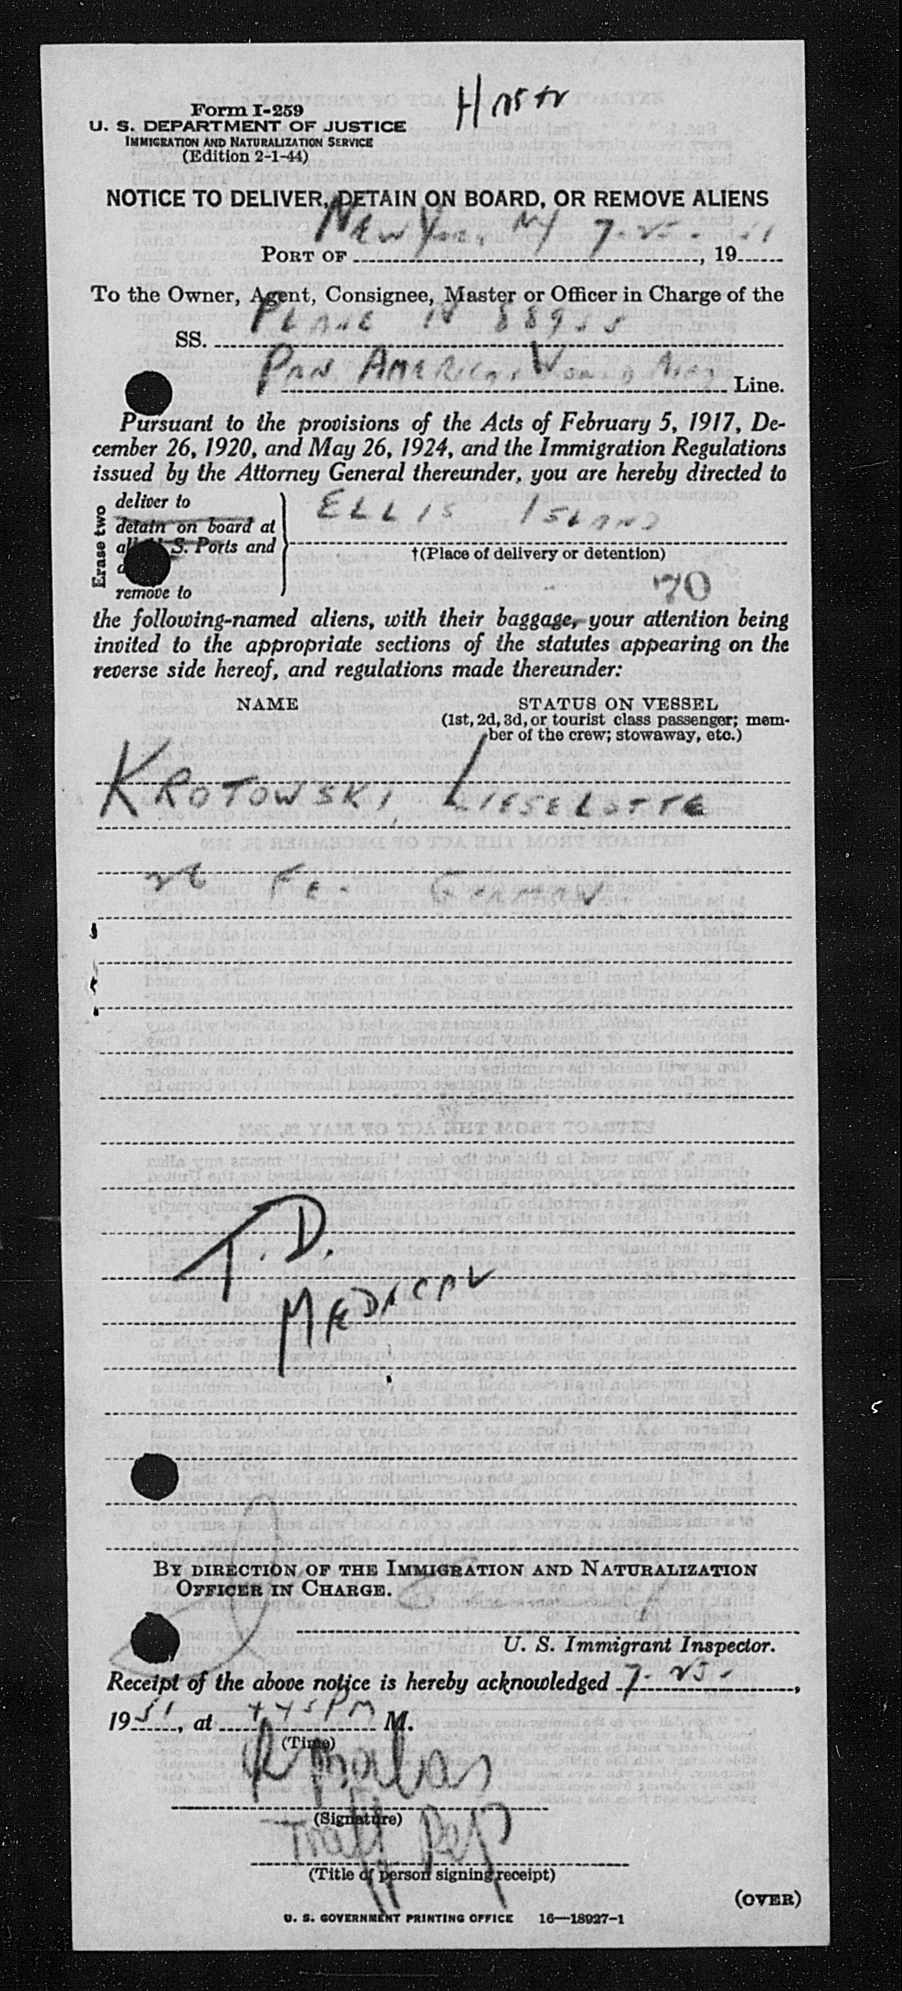 Form I-259
U. S. DEPARTMENT OF JUSTICE
IMMIGRATION AND NATURALIZATION SERVICE
(Edition 2-1-44)
NOTICE TO DELIVER, DETAIN ON BOARD, OR REMOVE ALIENS
PORT OF New York, NY 7-25-51, 19
To the Owner, Agent, Consignee, Master or Officer in Charge of the
SS. PLANE N 88955
PAN AMERICAN WORLD Line.
Pursuant to the provisions of the Acts of February 5, 1917, De-
cember 26, 1920, and May 26, 1924, and the Immigration Regulations
issued by the Attorney General thereunder, you are hereby directed to
Erase two
deliver to ELLIS ISLAND
detain on board at
S. Ports and
†(Place of delivery or detention)
remove to
70
the following-named aliens, with their baggage, your attention being
invited to the appropriate sections of the statutes appearing on the
reverse side hereof, and regulations made thereunder:
NAME STATUS ON VESSEL
(1st, 2d, 3d, or tourist class passenger; mem-
ber of the crew; stowaway, etc.)
KROTOWSKI, LIESELOTTE
FE. GERMAN
T.D.
MEDICAL
BY DIRECTION OF THE IMMIGRATION AND NATURALIZATION
OFFICER IN CHARGE.
U. S. Immigrant Inspector.
Receipt of the above notice is hereby acknowledged 7-25-,
1951, at 445 PM M.
(Time)
(Signature)
Traff Rep
(Title of person signing receipt)
(OVER)
U. S. GOVERNMENT PRINTING OFFICE 16—18927-1